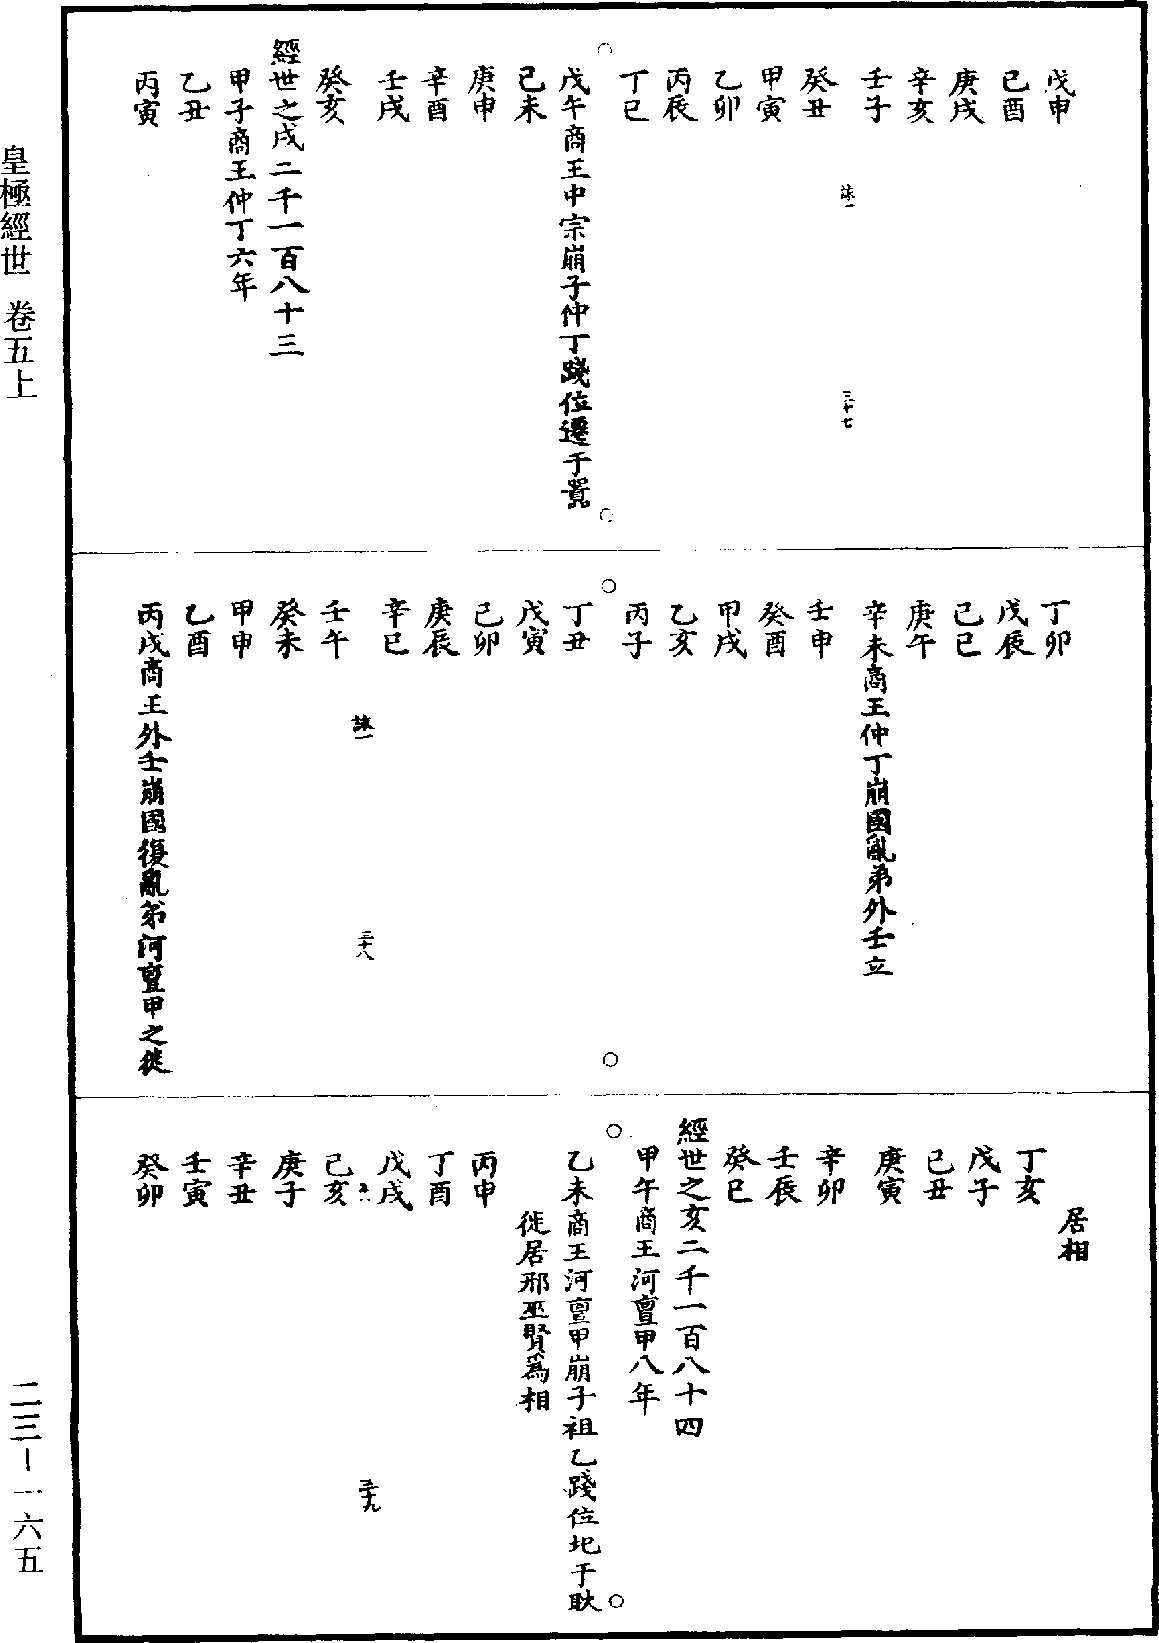 戊申
己酉
庚戌
辛亥
壬子
三十七
癸丑
甲寅
乙卯
丙辰
丁巳
戊午商王中宗崩子仲丁踐位遷于囂
己未
庚申
辛酉
壬戌
癸亥
經世之戌二千一百八十三
甲子商王仲丁六年
乙丑
丙寅
丁卯
戊辰
己巳
庚午
辛未商王仲丁崩國亂弟外壬立
壬申
癸酉
甲戌
乙亥
丙子
丁丑
戊寅
己卯
庚辰
辛巳
三十八
壬午
癸未
甲申
乙酉
丙戌商王外壬崩國復亂弟河亶甲之徙
居相
丁亥
戊子
己丑
庚寅
辛卯
壬辰
癸巳
經世之亥二千一百八十四
甲午商王河亶甲八年
乙未商王河亶甲崩子祖乙踐位圯于耿
徙居邢巫賢爲相
丙申
丁酉
戊戌
三十九
己亥
庚子
辛丑
壬寅
癸卯
皇極經世 卷五上
二三－一六五